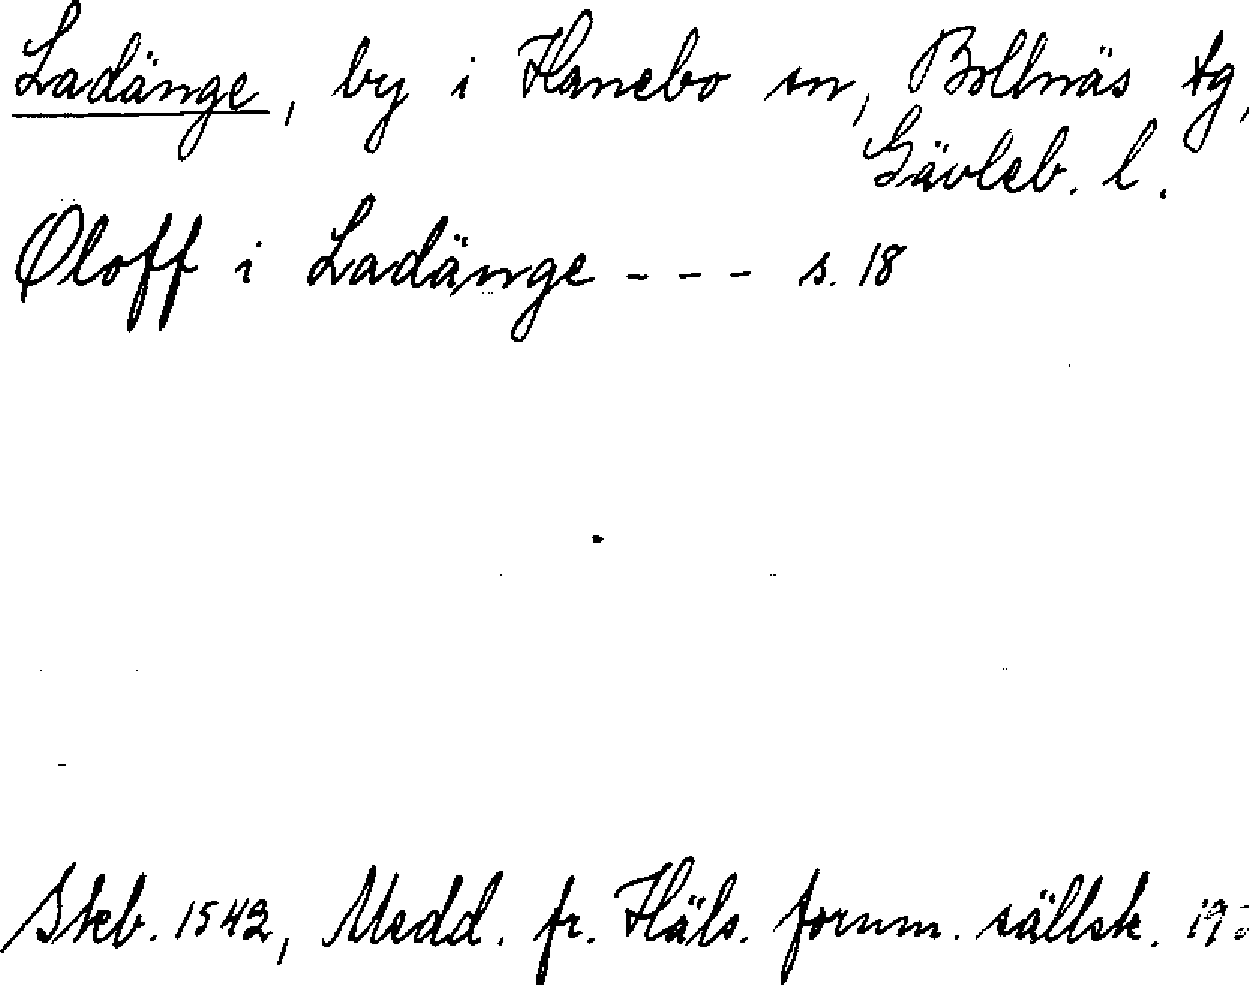 Ladänge, by i Hanebo sn, Bollnäs tg,
Gävleb. l.
Oloff i Ladänge - - - s. 18
Skb. 1542, Medd. fr. Häls. fornm. sällsk.